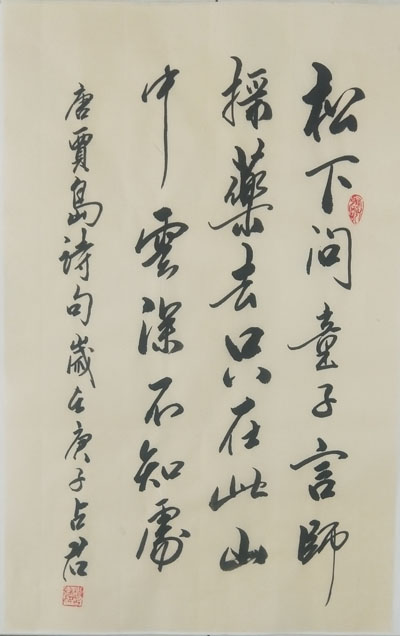 松下问童子言師
採藥去只在此山
中雲深不知處
唐賈島詩句歲在庚子占君